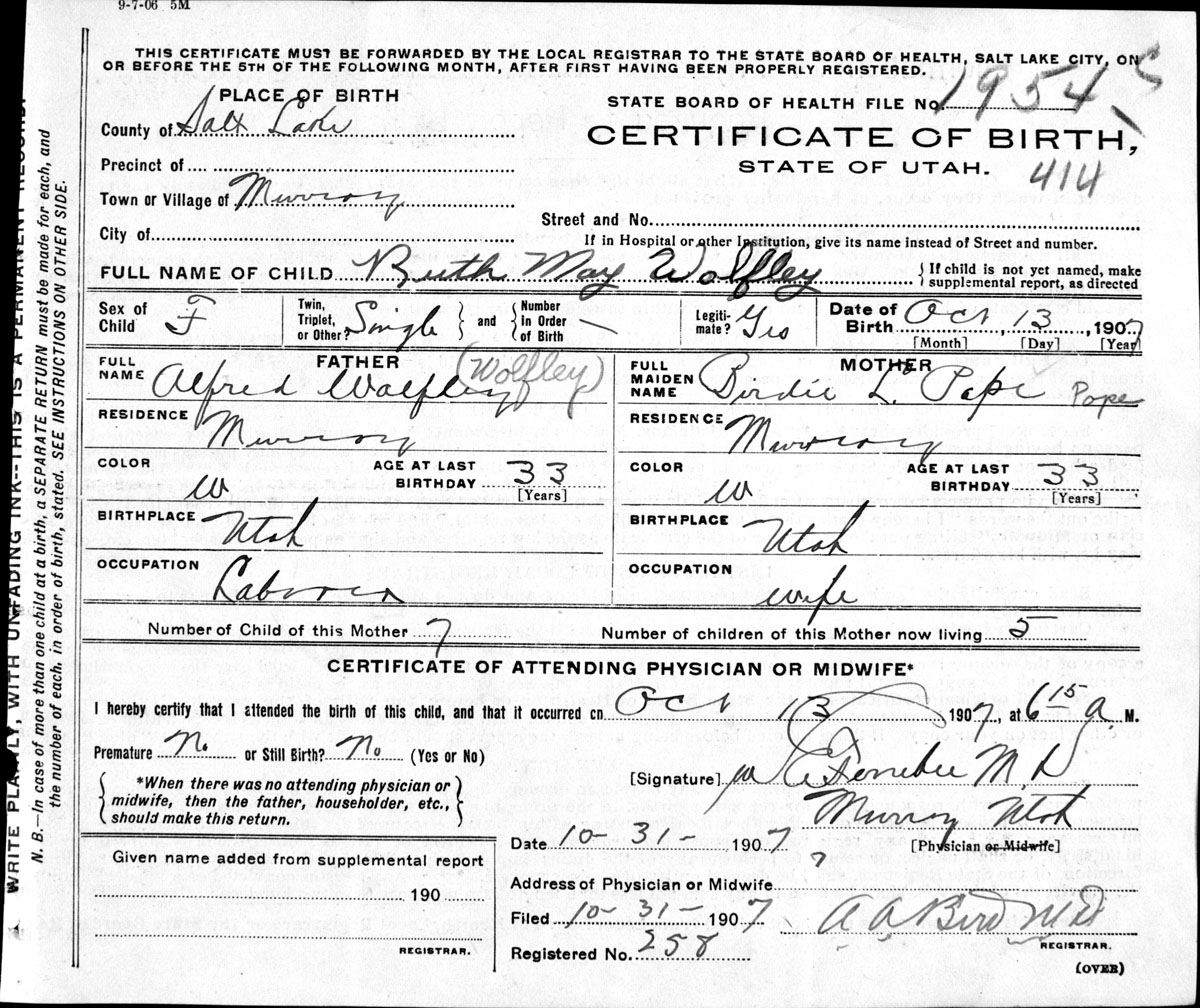 9-7-06 5M
THIS CERTIFICATE MUST BE FORWARDED BY THE LOCAL REGISTRAR TO THE STATE BOARD OF HEALTH, SALT LAKE CITY, ON
OR BEFORE THE 5TH OF THE FOLLOWING MONTH, AFTER FIRST HAVING BEEN PROPERLY REGISTERED.
PLACE OF BIRTH
County of Salt Lake
Precinct of
Town or Village of Murray
City of
STATE BOARD OF HEALTH FILE No. 1954
CERTIFICATE OF BIRTH,
STATE OF UTAH.
414
Street and No.
If in Hospital or other Institution, give its name instead of Street and number.
FULL NAME OF CHILD Ruth May Wolfley { If child is not yet named, make
supplemental report, as directed
Sex of Child F
Twin, Triplet, or Other? Single } and { Number In Order of Birth —
Legiti-mate? Yes
Date of Birth Oct 13, 1907
[Month] [Day] [Year]
FATHER
FULL NAME Alfred Walfley (Wolfley)
RESIDENCE Murray
COLOR W AGE AT LAST BIRTHDAY 33
[Years]
BIRTHPLACE Utah
OCCUPATION Laborer
MOTHER
FULL MAIDEN NAME Birdie L. Pape Pope
RESIDENCE Murray
COLOR W AGE AT LAST BIRTHDAY 33
[Years]
BIRTHPLACE Utah
OCCUPATION wife
Number of Child of this Mother 7 Number of children of this Mother now living 5
CERTIFICATE OF ATTENDING PHYSICIAN OR MIDWIFE*
I hereby certify that I attended the birth of this child, and that it occurred on Oct 13, 1907, at 6 15 a M.
Premature No or Still Birth? No (Yes or No)
{ *When there was no attending physician or
midwife, then the father, householder, etc.,
should make this return. }
[Signature] M D
Murray Utah
Date 10-31-1907 [Physician or Midwife]
?
Address of Physician or Midwife
Filed 10-31-1907 A A Bird M D
REGISTRAR.
Registered No. 258
(OVER)
Given name added from supplemental report
190
REGISTRAR.
WRITE PLAINLY, WITH UNFADING INK--THIS IS A PERMANENT RECORD.
N. B.—In case of more than one child at a birth, a SEPARATE RETURN must be made for each, and
the number of each in order of birth, stated. SEE INSTRUCTIONS ON OTHER SIDE.